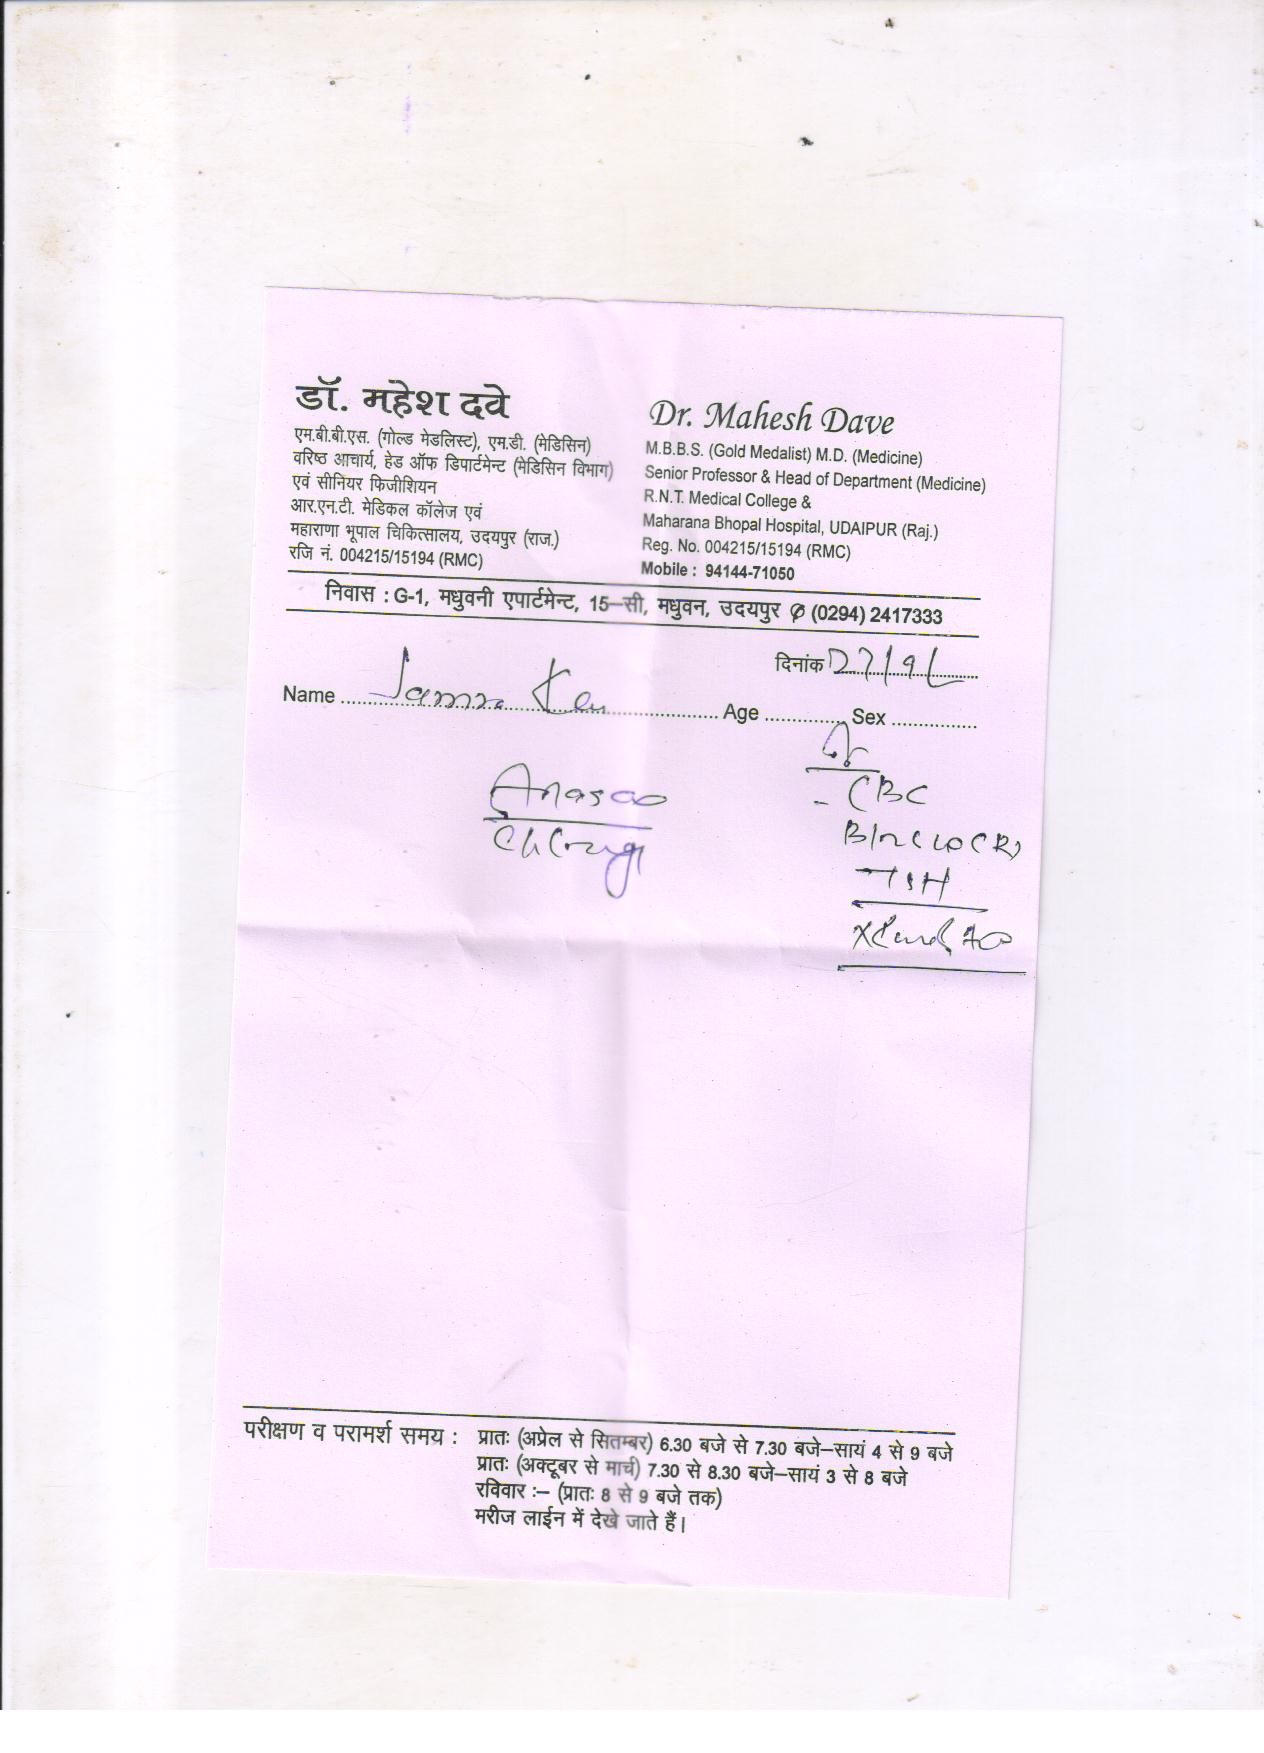 डॉ. महेश दवे
एम.बी.बी.एस. (गोल्ड मेडलिस्ट), एम.डी. (मेडिसिन)
वरिष्ठ आचार्य, हेड ऑफ डिपार्टमेन्ट (मेडिसिन विभाग)
एवं सीनियर फिजीशियन
आर.एन.टी. मेडिकल कॉलेज एवं
महाराणा भूपाल चिकित्सालय, उदयपुर (राज.)
रजि नं. 004215/15194 (RMC)
Dr. Mahesh Dave
M.B.B.S. (Gold Medalist) M.D. (Medicine)
Senior Professor & Head of Department (Medicine)
R.N.T. Medical College &
Maharana Bhopal Hospital, UDAIPUR (Raj.)
Reg. No. 004215/15194 (RMC)
Mobile : 94144-71050
निवास : G-1, मधुवनी एपार्टमेन्ट, 15–सी, मधुवन, उदयपुर ✆ (0294) 2417333
दिनांक
Name Age Sex
- CBC
TSH
परीक्षण व परामर्श समय : प्रातः (अप्रेल से सितम्बर) 6.30 बजे से 7.30 बजे–सायं 4 से 9 बजे
प्रातः (अक्टूबर से मार्च) 7.30 से 8.30 बजे–सायं 3 से 8 बजे
रविवार :– (प्रातः 8 से 9 बजे तक)
मरीज लाईन में देखे जाते हैं।